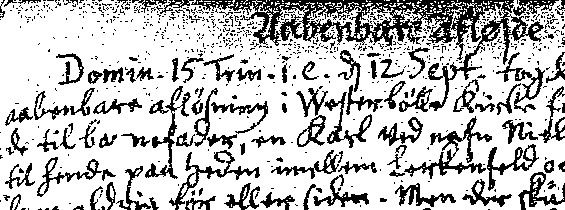 Aabenbare afløste.
Domin. 15 Trin. i. e. d 12 Sept. tog
aabenbare afløsning i Westerbølle Kircke
de til bare nefader, en Karl ved nafn Niel
til hende paa heden imellem Lerkenfeld o
aldrig før eller siden. Men der